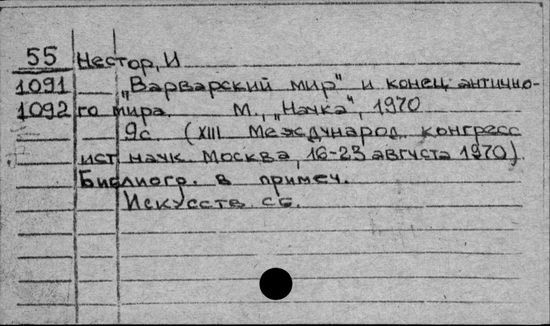 55 Нестор, И
1091 „Варварский мир" и конец антично-
1092 го мира. М., „Наука", 1970
9с (XIII Международ. конгресс
ист наук. Москва, 16-23 августа 1970).
Библиогр. в примеч.
Искусств сб.